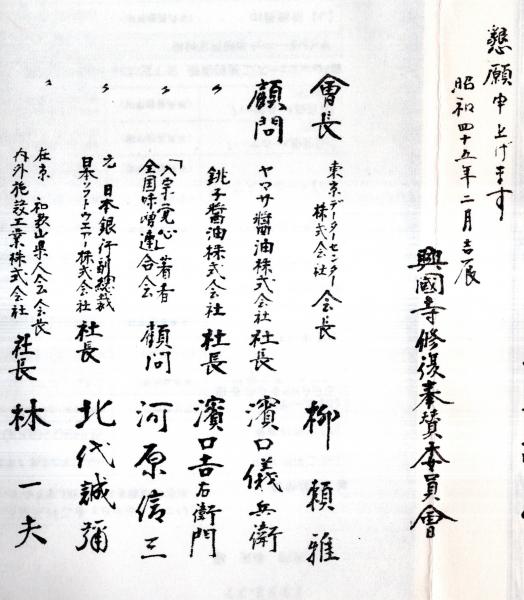 懇願申上げます
昭和四十五年二月吉辰
興國寺修復奉賛委員會
會長 東京データーセンター株式会社 会長 柳頼雅
顧問 ヤマサ醬油株式会社 社長 濱口儀兵衛
〃 銚子醬油株式会社 社長 濱口吉右衛門
〃 「入宋覚心」著者 全国味噌連合会 顧問 河原信三
〃 元日本銀行副総裁 日本ソフトウエアー株式会社 社長 北代誠彌
〃 在京和歌山県人会会長 内外施設工業株式会社 社長 林一夫